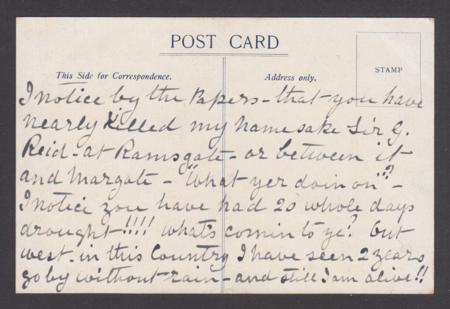 POST CARD
This Side for Correspondence.
Address only.
STAMP
I notice by the Papers - that you have
nearly killed my namesake Sir G.
Reid - at Ramsgate - or between it
and Margate - "What yer doin on"? -
I notice you have had 20 whole days
drought!!!! what's comin to ye? but
west - in this Country I have seen 2 years
go by without rain - and still I am alive!!